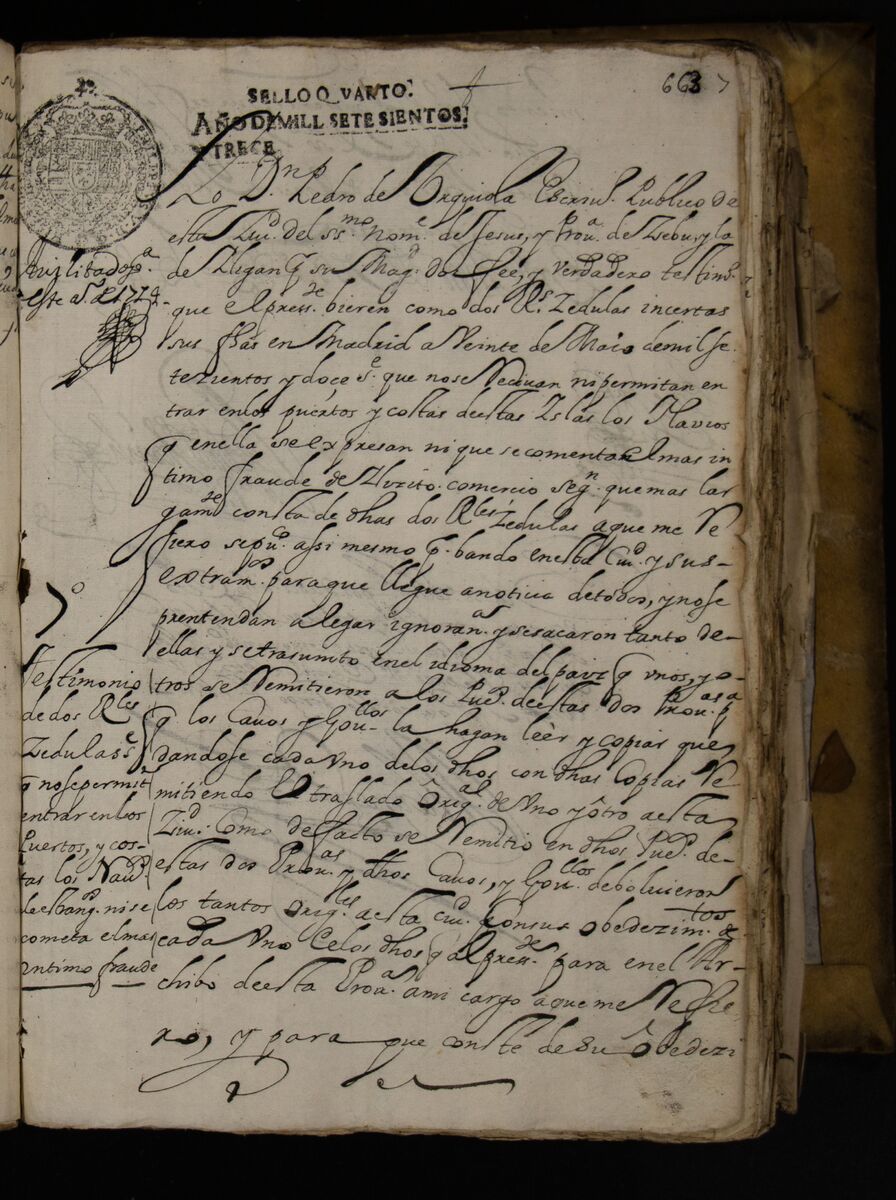 SELLO QVARTO:
AÑO DE MILL SETE SIENTOS,
Y TRECE
663
Yo Dn. Pedro de Vrquiola Escriuo. Publico de
esta Ziud. del ssmo. nome. de Jesus, y Proua. de Zebu, y la
de Ylegan q su Magd. doi feè, y verdadero testimo.
que el press.te bieren como dos Rs. Zedulas incertas
sus fhas en Madrid a Veinte de Maio de mil se
tezientos y doce se. que no se Reciuan ni permitan en
trar en los puertos y costas de estas Yslas los Nauios
q en ella se expresan ni que se comenta el mas in
timo fraude de Ylizito comercio segn. que mas lar
gamte. consta de dhas dos Rles Zedulas a que me Re
fiero se puco. assi mesmo pr. bando en esta Ciud. y sus
extramos. para que llegue a noticia de todos, y no se
prentendan alegar ignoranas. y se sacaron tanto de
ellas y se trasumto en el idioma del paiz q vnos, y o
tros se Remitieron a los Pueos. de estas dos Prouas. pa
q los Cauos y Goullos la hagan leèr y copiar que
dandose cada vno de los dhos con dhas Copias Re
mitiendo el traslado Origal. de vno y otro a esta
Ziud. Como de facto se Remitio en dhos Pueos. de
estas dos Prouas. y dhos Cauos, y Goullos. deboluieron
los tantos origles. a esta Ciud. con sus obedezimtos. de
cada vno de los dhos q al press.te para en el Ar
chibo de esta Proua. a mi cargo a que me Refie
ro, y para que conste de su obedezi
Auilitado pa.
este aº. de 1714
7º
Testimonio
de dos Rles
Zedulas se.
q no se permita
entrar en los
Puertos, y cos
tas los Nauos.
de estrangos. ni se
cometa el mas
yntimo fraude